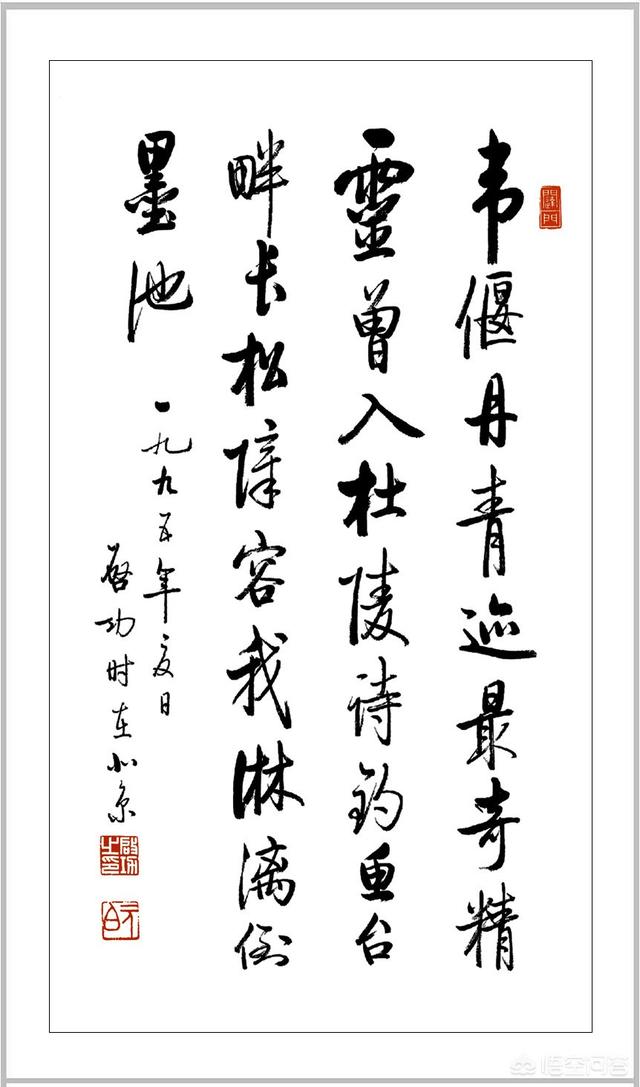 韦偃丹青迹最奇精
靈曾入杜陵诗钓鱼台
畔长松障容我淋漓倒
墨池
一九九五年夏日
啓功时在北京
啓功之印
元白
悟空问答